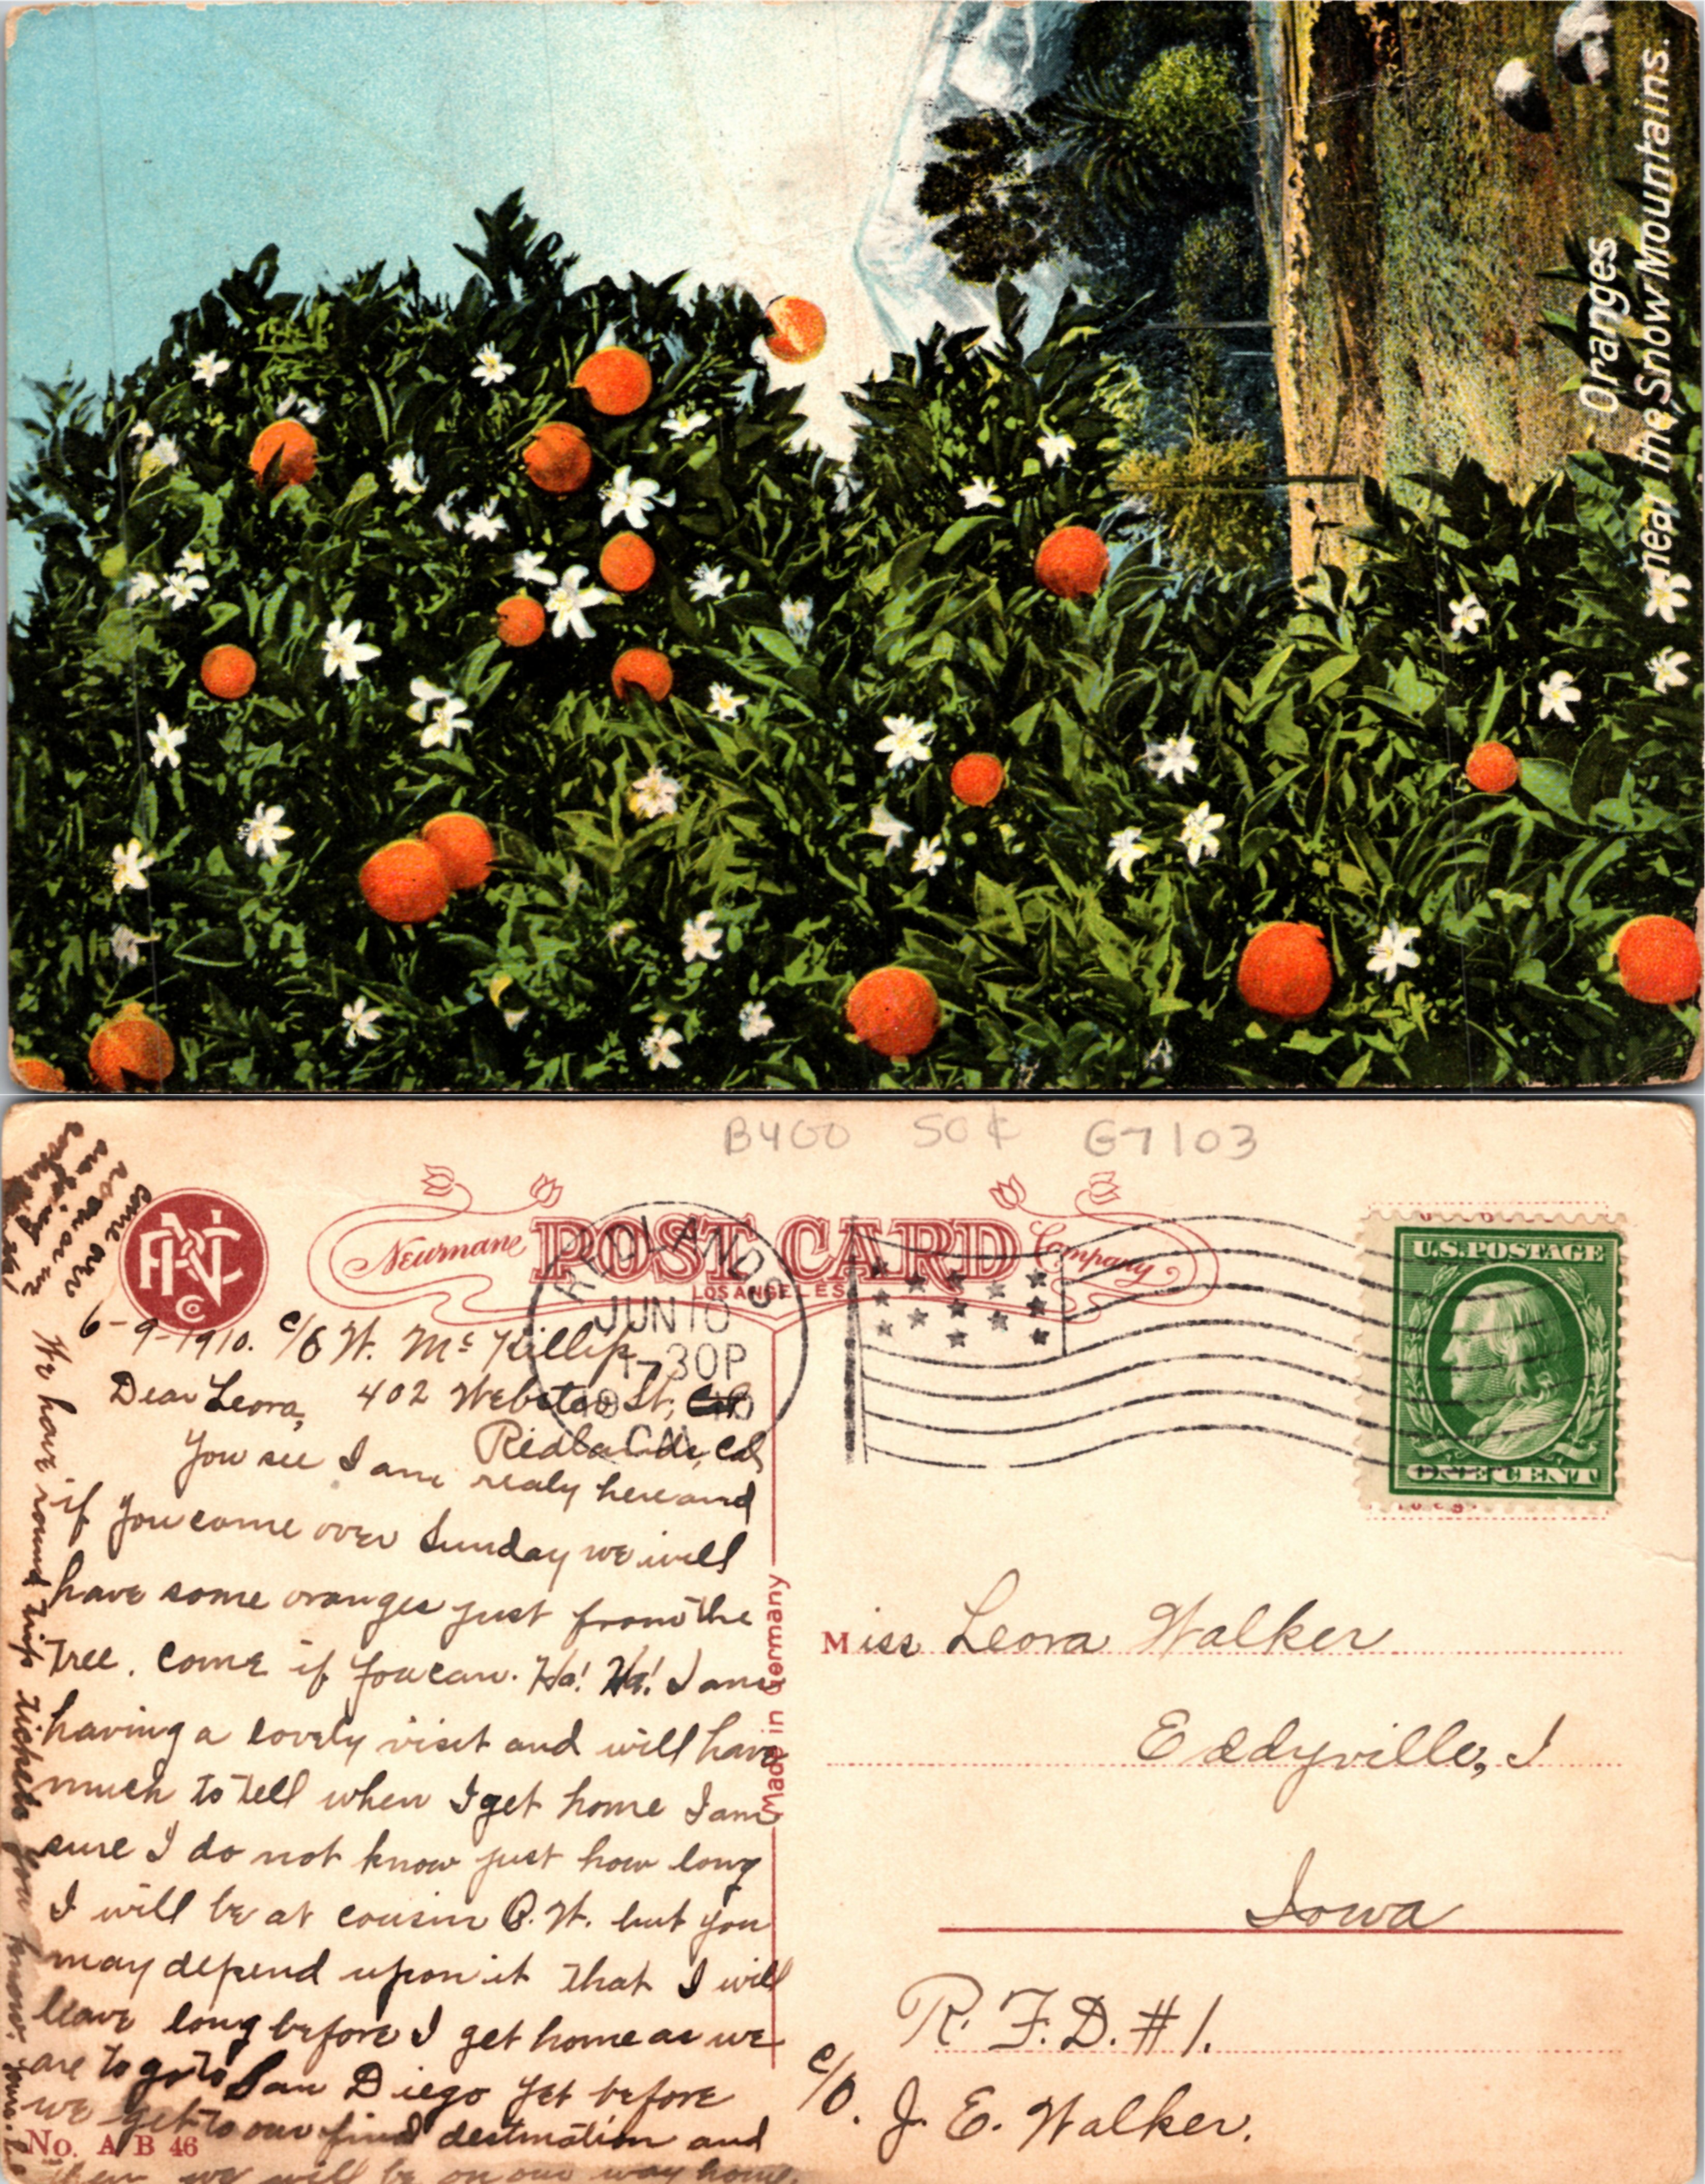 Oranges
near the Snow Mountains.
B400 50¢ G7103
PNC
Co
Neumane POST CARD Company
LOS ANGELES
REDLANDS
JUN 10
7-30P
CAL
U.S. POSTAGE
ONE CENT
6-9-1910. c/o W. Mc Killip
Dear Leora, 402 Webster St,
Redlands, Cal
You see I am realy here and
if you come over Sunday we will
have some oranges just from the
tree. Come if you can. Ha! Ha! I am
having a lovely visit and will have
much to tell when I get home I am
sure I do not know just how long
I will be at cousin W. but you
may depend upon it that I will
leave long before I get home as we
are to go to San Diego yet before
we get to our final destination and
then we will be on our way home.
We have round trip tickets you know.
come over
Made in Germany
No. A B 46
Miss Leora Walker
Eddyville, I
Iowa
R.F.D. #1.
c/o. J. E. Walker.